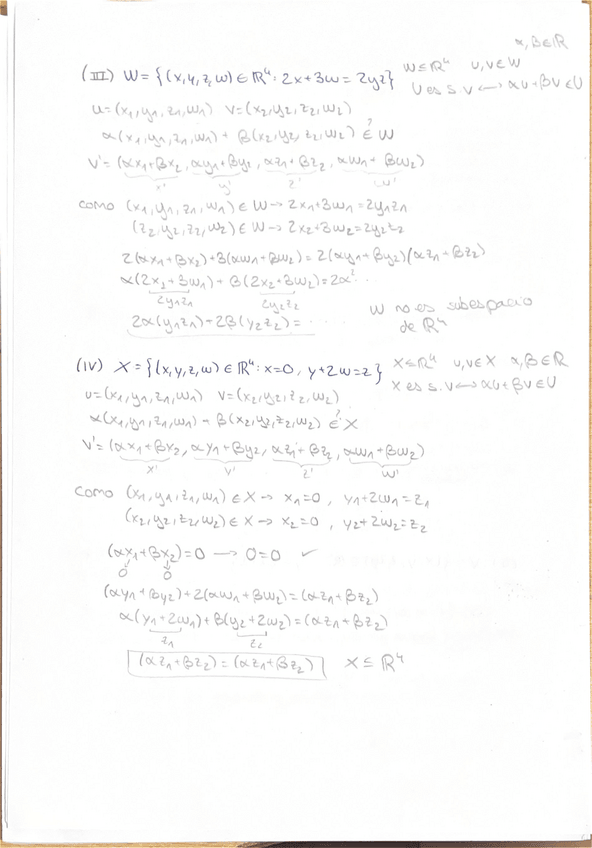 α, β ∈ ℝ
(III) W = {(x,y,z,w) ∈ ℝ⁴: 2x+3w = 2yz} W ≤ ℝ⁴ u,v ∈ W
U es s.v ⟷ αu+βv ∈ U
u=(x₁,y₁,z₁,w₁) v=(x₂,y₂,z₂,w₂)
α(x₁,y₁,z₁,w₁) + β(x₂,y₂,z₂,w₂) ∈? W
v'=(αx₁+βx₂, αy₁+βy₂, αz₁+βz₂, αw₁+βw₂)
x' y' z' w'
como (x₁,y₁,z₁,w₁) ∈ W → 2x₁+3w₁=2y₁z₁
(z₂,y₂,z₂,w₂) ∈ W → 2x₂+3w₂=2y₂z₂
2(αx₁+βx₂)+3(αw₁+βw₂) = 2(αy₁+βy₂)(αz₁+βz₂)
α(2x₁+3w₁)+β(2x₂+3w₂)=2α²··
2y₁z₁ 2y₂z₂
W no es subespacio
2α(y₁z₁)+2β(y₂z₂)=····
de ℝ⁴
(IV) X = {(x,y,z,w) ∈ ℝ⁴: x=0, y+2w=z} X ≤ ℝ⁴ u,v ∈ X α,β ∈ ℝ
X es s.v ⟷ αu+βv ∈ U
u=(x₁,y₁,z₁,w₁) v=(x₂,y₂,z₂,w₂)
α(x₁,y₁,z₁,w₁) + β(x₂,y₂,z₂,w₂) ∈? X
v'=(αx₁+βx₂, αy₁+βy₂, αz₁+βz₂, αw₁+βw₂)
x' y' z' w'
como (x₁,y₁,z₁,w₁) ∈ X → x₁=0, y₁+2w₁=z₁
(x₂,y₂,z₂,w₂) ∈ X → x₂=0, y₂+2w₂=z₂
(αx₁+βx₂)=0 → 0=0 ✓
0 0
(αy₁+βy₂)+2(αw₁+βw₂)=(αz₁+βz₂)
α(y₁+2w₁)+β(y₂+2w₂)=(αz₁+βz₂)
z₁ z₂
(αz₁+βz₂)=(αz₁+βz₂) X ≤ ℝ⁴